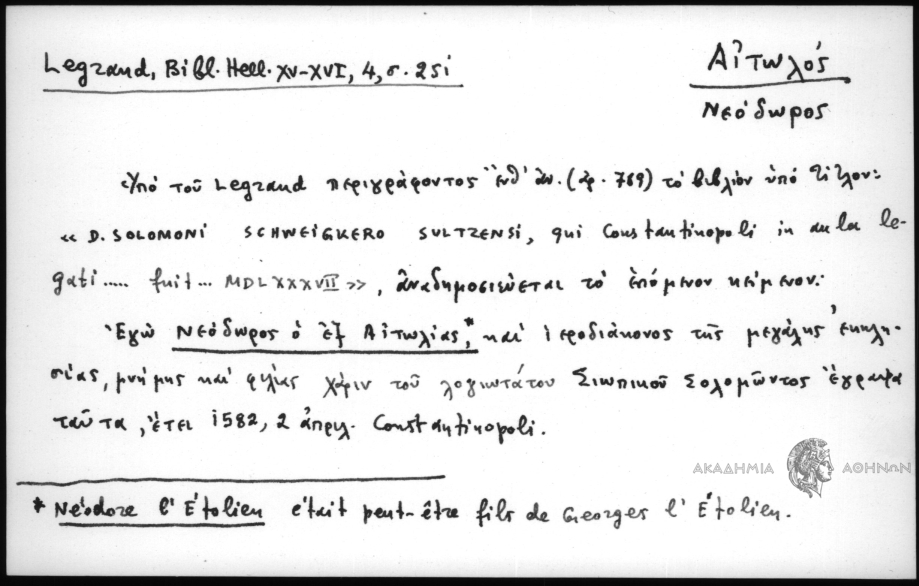 Legrand, Bibl. Hell. XV-XVI, 4, σ. 251
Αἰτωλός
Νεόδωρος
Ὑπό τοῦ Legrand περιγράφοντος ἔνθ' ἀν. (ἀρ. 769) τό βιβλίον ὑπό τίτλον:
« D. SOLOMONI SCHWEIGKERO SULTZENSI, qui Constantinopoli in aula le-
gati..... fuit... MDLXXXVII », ἀναδημοσιεύεται τό ἑπόμενον κείμενον:
Ἐγώ Νεόδωρος ὁ ἐξ Αἰτωλίας,* καί ἱεροδιάκονος τῆς μεγάλης ἐκκλη-
σίας, μνήμης καί φιλίας χάριν τοῦ λογιωτάτου Σιωπικοῦ Σολομῶντος ἔγραψα
ταῦτα, ἔτει 1582, 2 ἀπριλ. Constantinopoli.
* Néodore l'Étolien était peut-être fils de Georges l'Étolien.
ΑΚΑΔΗΜΙΑ ΑΘΗΝΩΝ